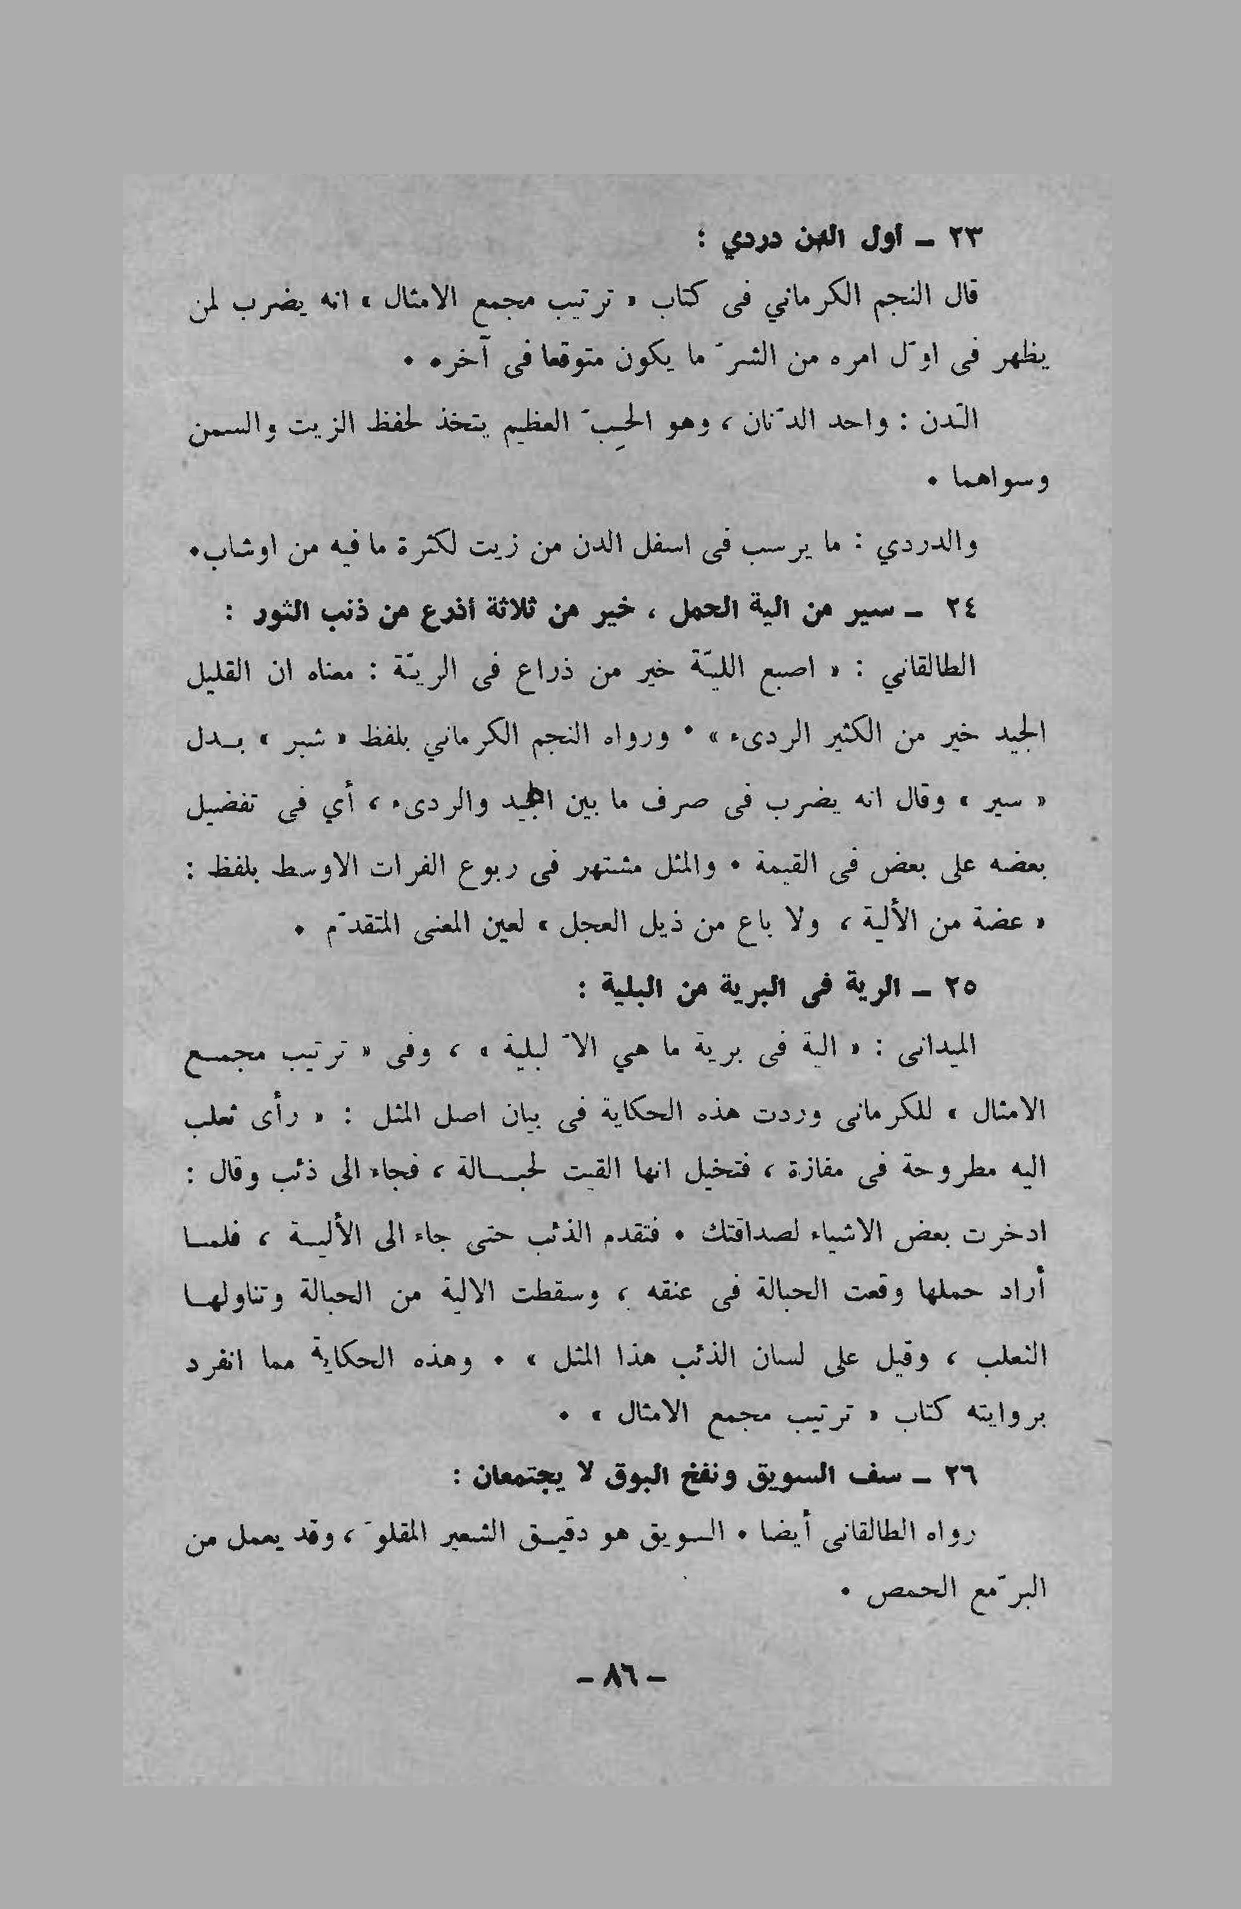 ٢٣ ـ أول الدن دردي :
قال النجم الكرماني في كتاب « ترتيب مجمع الامثال » انه يضرب لمن
يظهر في اوّل امره من الشرّ ما يكون متوقعا في آخره •
الدّن : واحد الدّنان ، وهو الحِبّ العظيم يتخذ لحفظ الزيت والسمن
وسواهما •
والدردي : ما يرسب في اسفل الدن من زيت لكثرة ما فيه من اوشاب•
٢٤ ـ سير من الية الحمل ، خير من ثلاثة أذرع من ذنب الثور :
الطالقاني : « اصبع الليّة خير من ذراع في الريّة : معناه ان القليل
الجيد خير من الكثير الردىء » • ورواه النجم الكرماني بلفظ « شبر » بـدل
« سير » وقال انه يضرب في صرف ما بين الجيد والردىء ، أي في تفضيل
بعضه على بعض في القيمة • والمثل مشتهر في ربوع الفرات الاوسط بلفظ :
« عضة من الألية ، ولا باع من ذيل العجل » لعين المعنى المتقدّم •
٢٥ ـ الرية في البرية من البلية :
الميدانى : « الية في برية ما هي الاّ لبلية » ، وفي « ترتيب مجمـع
الامثال » للكرمانى وردت هذه الحكاية في بيان اصل المثل : « رأى ثعلب
اليه مطروحة في مفازة ، فتخيل انها القيت لحبـالة ، فجاء الى ذئب وقال :
ادخرت بعض الاشياء لصداقتك • فتقدم الذئب حتى جاء الى الأليـة ، فلمـا
أراد حملها وقعت الحبالة في عنقه ، وسقطت الالية من الحبالة وتناولهـا
الثعلب ، وقيل على لسان الذئب هذا المثل » • وهذه الحكاية مما انفرد
بروايته كتاب « ترتيب مجمع الامثال » •
٢٦ ـ سف السويق ونفخ البوق لا يجتمعان :
رواه الطالقانى أيضا • السويق هو دقيـق الشعير المقلوّ ، وقد يعمل من
البرّ مع الحمص •
ـ ٨٦ ـ